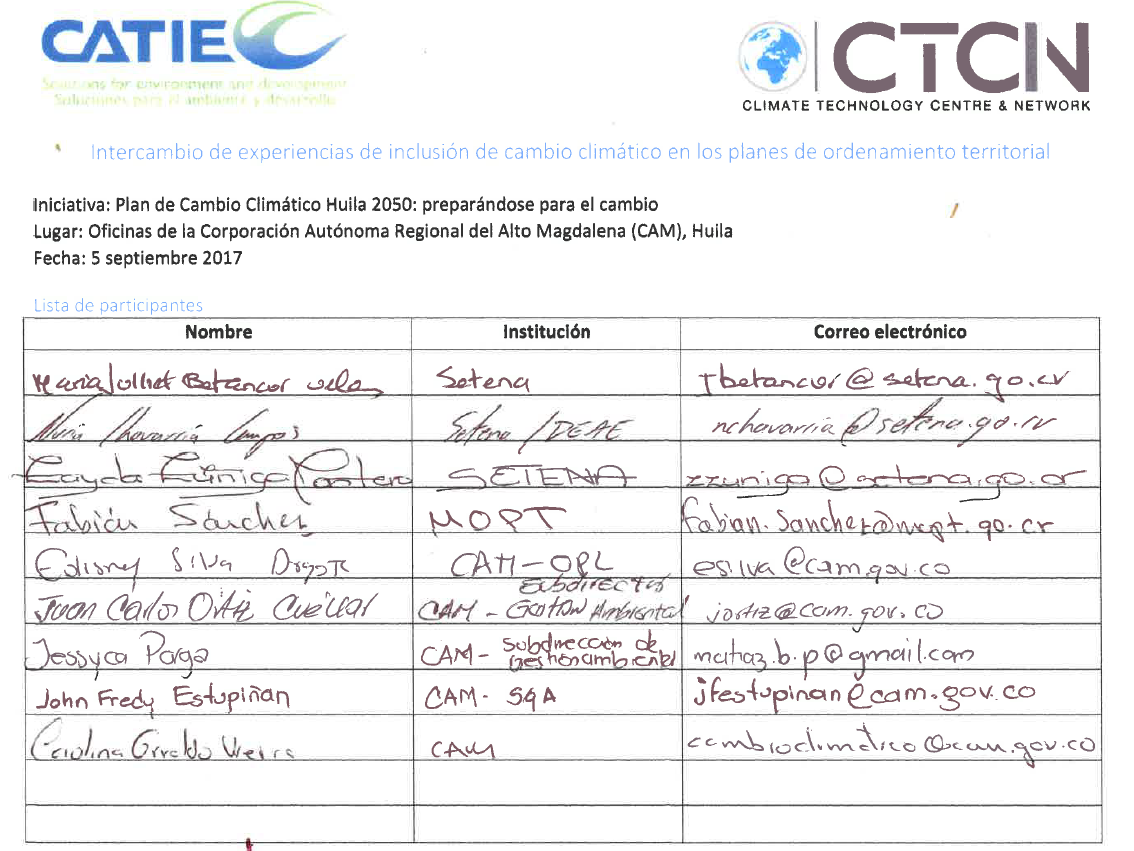 CATIE
Solutions for environment and development
Soluciones para el ambiente y desarrollo
CTCN
CLIMATE TECHNOLOGY CENTRE & NETWORK
Intercambio de experiencias de inclusión de cambio climático en los planes de ordenamiento territorial
Iniciativa: Plan de Cambio Climático Huila 2050: preparándose para el cambio
Lugar: Oficinas de la Corporación Autónoma Regional del Alto Magdalena (CAM), Huila
Fecha: 5 septiembre 2017
Lista de participantes
Nombre Institución Correo electrónico
Maria Julliet Betancur Setena Jbetancur@setena.go.cr
Nuria Chavarría Campos Setena/DEAE nchavarria@setena.go.cr
Zayda Zúñiga SETENA zzuniga@setena.go.cr
Fabián Sánchez MOPT fabian.sanchez@mopt.go.cr
Edisney Silva CAM-OPL esilva@cam.gov.co
Juan Carlos Ortiz Cuéllar CAM - Subdirector Gestión Ambiental jortiz@cam.gov.co
Jessyca Parga CAM- Subdirección de Gestion ambiental
John Fredy Estupiñan CAM- SGA jfestupinan@cam.gov.co
Carolina Giraldo CAM cambioclimatico@cam.gov.co